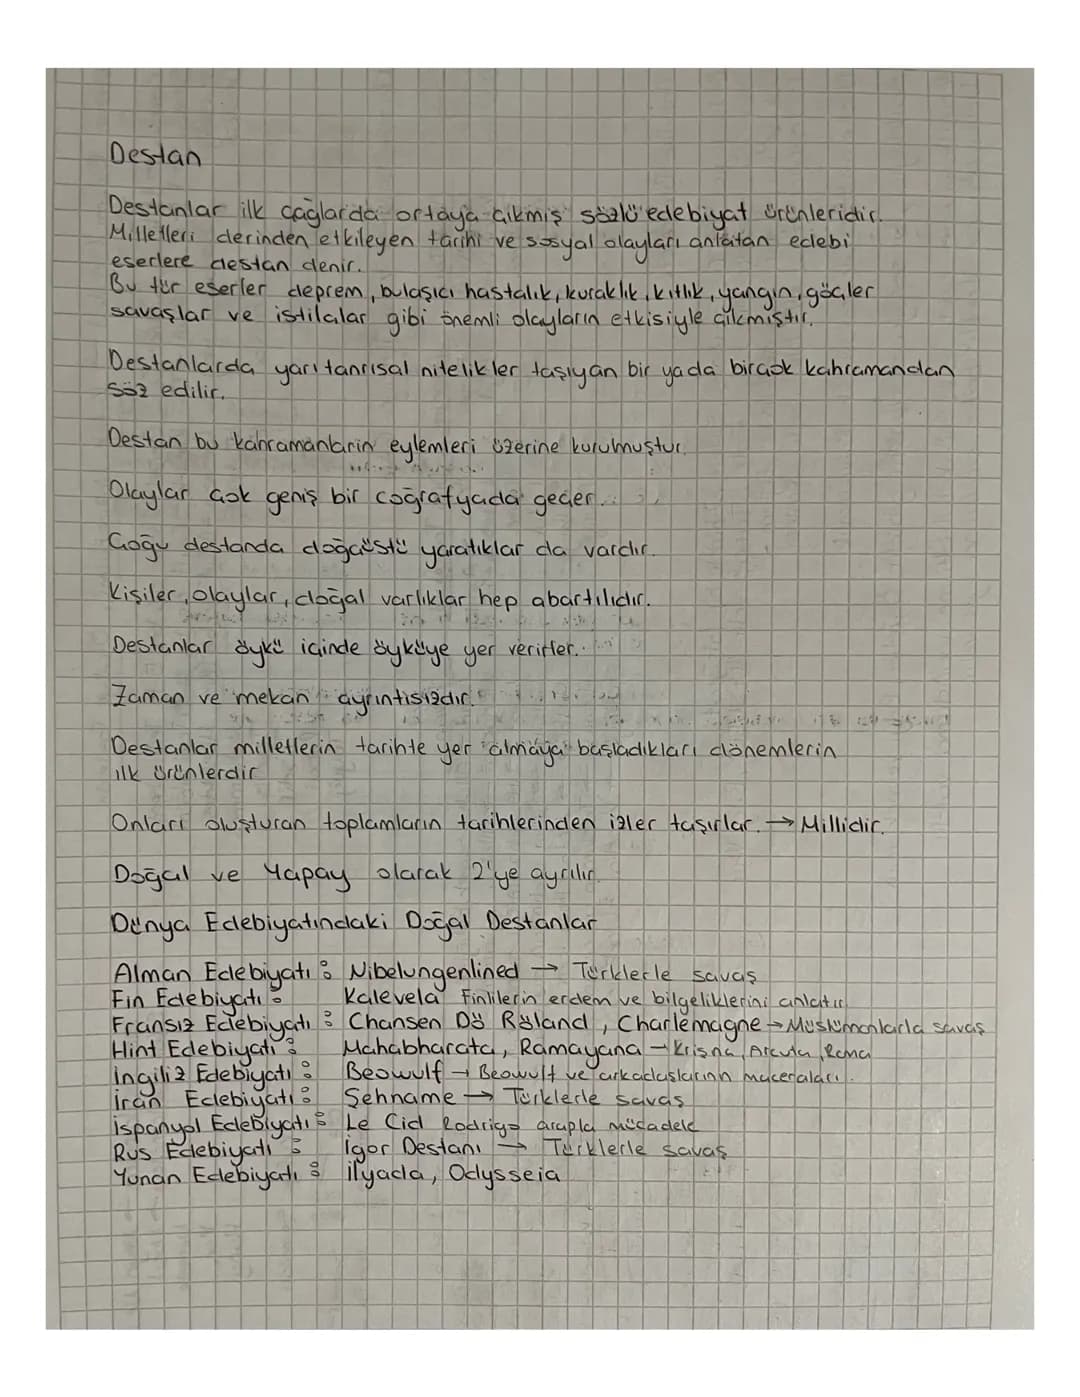 Destan
Destanlar ilk çağlarda ortaya çıkmış sözlü edebiyat ürünleridir.
Milletleri derinden etkileyen tarihi ve sosyal olayları anlatan edebi
eserlere destan denir.
Bu tür eserler deprem, bulaşıcı hastalık, kuraklık, kıtlık, yangın, göçler
savaşlar ve istilalar gibi önemli olayların etkisiyle çıkmıştır.
Destanlarda yarı tanrısal nitelikler taşıyan bir yada birçok kahramandan
söz edilir.
Destan bu kahramanların eylemleri üzerine kurulmuştur.
Olaylar çok geniş bir coğrafyada geçer.
Çoğu destanda doğaüstü yaratıklar da vardır.
Kişiler, olaylar, doğal varlıklar hep abartılıdır.
Destanlar öykü içinde öyküye yer verirler.
Zaman ve mekan ayrıntısızdır.
Destanlar milletlerin tarihte yer almaya başladıkları dönemlerin
ilk ürünlerdir
Onları oluşturan toplamların tarihlerinden izler taşırlar. → Millidir.
Doğal ve Yapay olarak 2'ye ayrılır.
Dünya Edebiyatındaki Doğal Destanlar
Alman Edebiyatı : Nibelungenlined → Türklerle savaş
Fin Edebiyatı : Kalevela Finlilerin erdem ve bilgeliklerini anlatır
Fransız Edebiyatı : Chansen Dö Röland, Charlemagne → Müslümanlarla savaş
Hint Edebiyatı : Mahabharata, Ramayana → Krişna, Rama
İngiliz Edebiyatı : Beowulf → Beowulf ve arkadaşlarının maceraları.
İran Edebiyatı : Şehname → Türklerle savaş
İspanyol Edebiyatı : Le Cid Rodrigo arapla mücadele
Rus Edebiyatı : İgor Destanı → Türklerle savaş
Yunan Edebiyatı : İlyada, Odysseia